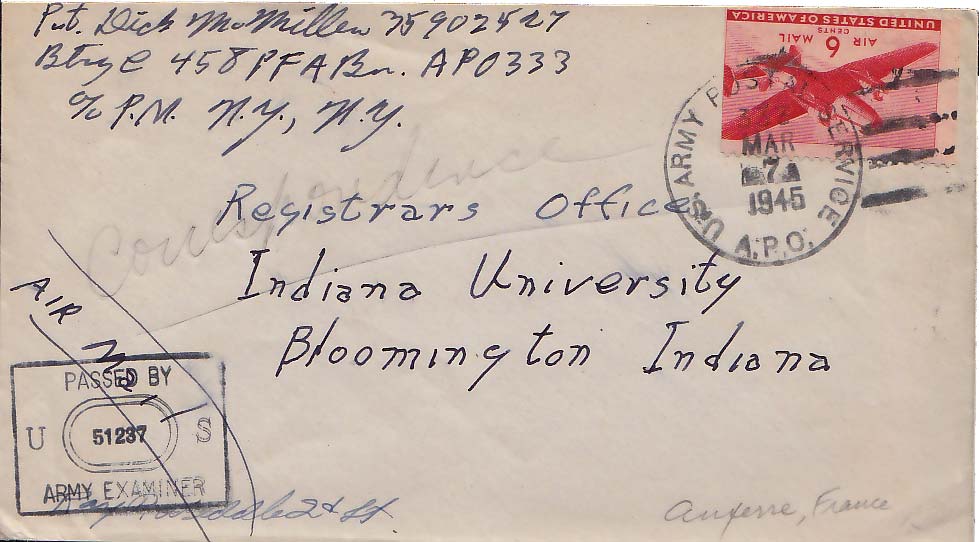 Pvt. Dick McMillen 35902527
Btry C 458 PFA Bn. APO 333
c/o P.M. N.Y., N.Y.
UNITED STATES OF AMERICA
6 CENTS
AIR MAIL
U.S. ARMY POSTAL SERVICE
MAR
7
1945
A.P.O.
Correspondence
Registrars Office
Indiana University
Bloomington Indiana
AIR MAIL
PASSED BY
U 51237 S
ARMY EXAMINER
2d Lt.
Auxerre, France